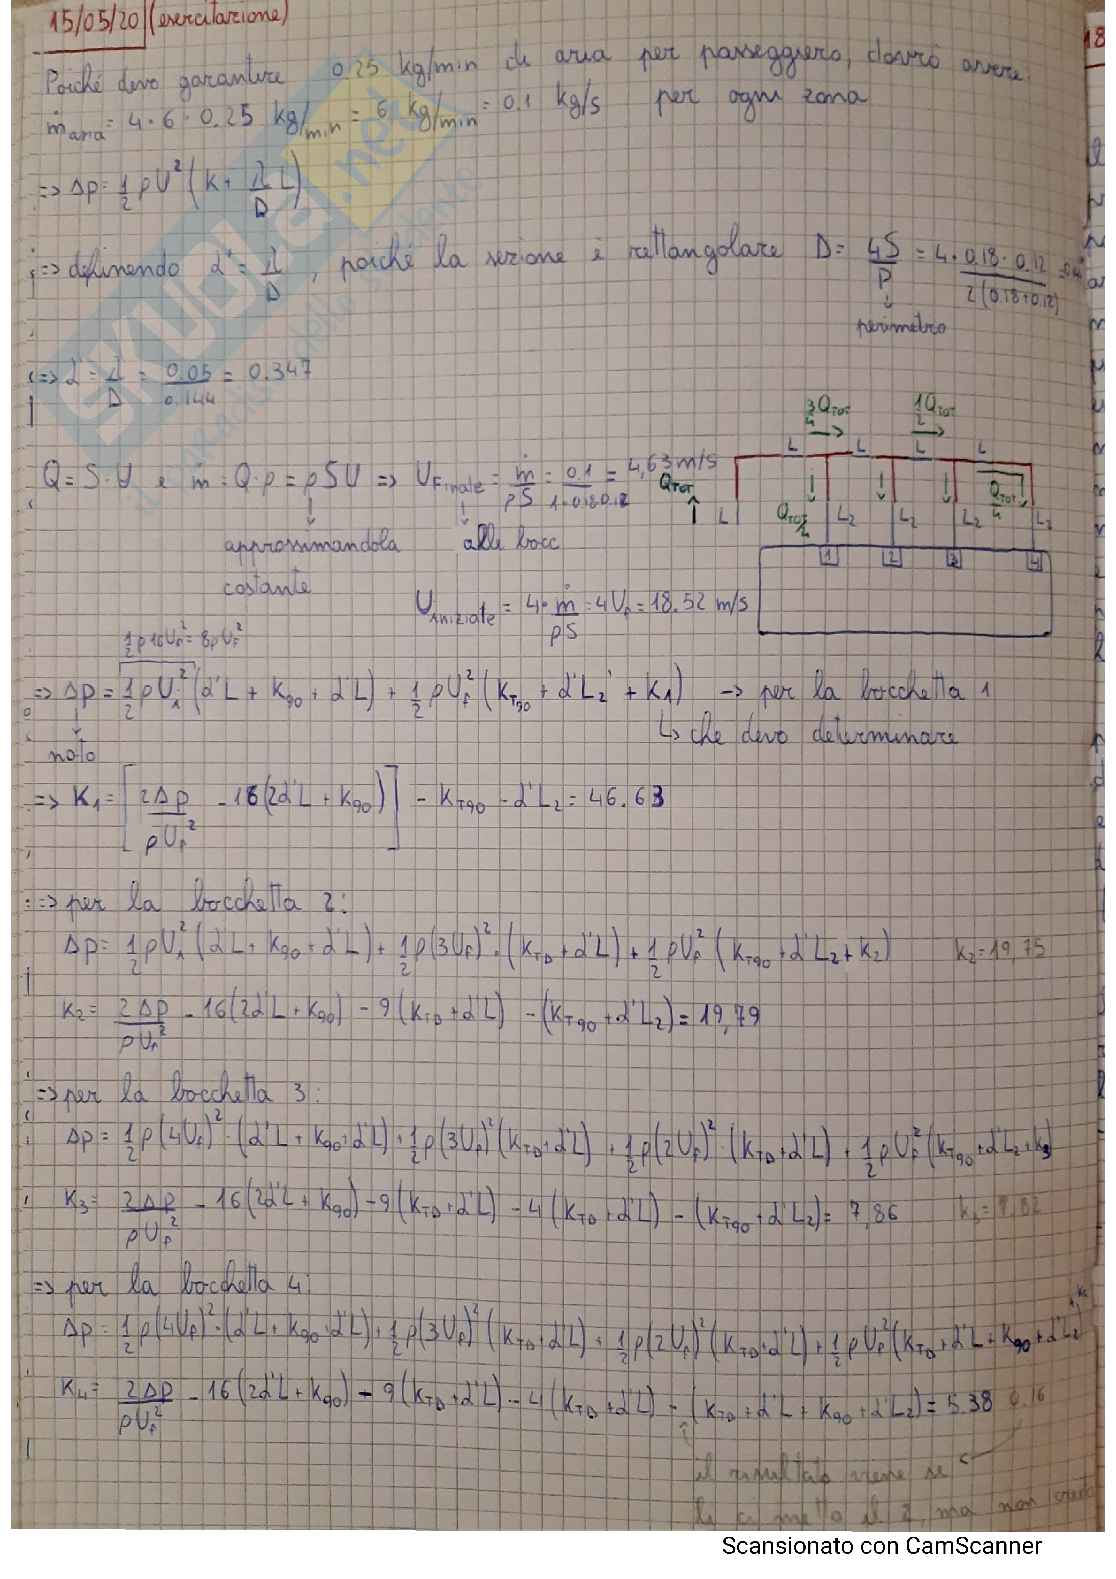 15/05/20 (esercitazione)
Poiché devo garantire 0.25 kg/min di aria per passeggero, dovrò avere:
ṁaria = 4·6·0.25 kg/min = 6 kg/min = 0.1 kg/s per ogni zona
=> Δp = 1/2 ρU² (K + λ/D L)
=> definendo α' = λ/D, poiché la sezione è rettangolare D = 4S/P = 4· 0.18·0.12 / 2(0.18+0.12)
perimetro
=> α' = λ/D = 0.05/0.144 = 0.347
3/4 QTOT 1/2 QTOT
L L L
Q = S·U e ṁ = Q·ρ = ρSU => UFinale = ṁ/ρS = 0.1/1·0.18·0.12 = 4,63 m/s
QTOT L QTOT/4 L2 L2 L2 QTOT/4 L2
approssimandola costante
alle bocc
1 2 3 4
Uiniziale = 4·ṁ/ρS = 4UF = 18.52 m/s
1/2 ρ16UF² = 8ρUF²
=> Δp = 1/2 ρU1² (α'L + K90 + α'L) + 1/2 ρUF² (KT90 + α'L2 + K1) -> per la bocchetta 1
noto
↳ che devo determinare
=> K1 = [2Δp/ρUF² - 16(2α'L + K90)] - KT90 - α'L2 = 46.63
=> per la bocchetta 2:
Δp = 1/2 ρU1² (α'L + K90 + α'L) + 1/2 ρ(3UF)² · (KTD + α'L) + 1/2 ρUF² (KT90 + α'L2 + K2) K2 = 19,75
K2 = 2Δp/ρUF² - 16(2α'L + K90) - 9(KTD + α'L) - (KT90 + α'L2) = 19,79
=> per la bocchetta 3:
Δp = 1/2 ρ(4UF)² · (α'L + K90 + α'L) + 1/2 ρ(3UF)² (KTD + α'L) + 1/2 ρ(2UF)² · (KTD + α'L) + 1/2 ρUF² (KT90 + α'L2 + K3)
K3 = 2Δp/ρUF² - 16(2α'L + K90) - 9(KTD + α'L) - 4(KTD + α'L) - (KT90 + α'L2) = 7,86
=> per la bocchetta 4:
Δp = 1/2 ρ(4UF)² · (α'L + K90 + α'L) + 1/2 ρ(3UF)² (KTD + α'L) + 1/2 ρ(2UF)² (KTD + α'L) + 1/2 ρUF² (KTD + α'L + K90 + α'L2) + K4
K4 = 2Δp/ρUF² - 16(2α'L + K90) - 9(KTD + α'L) - 4(KTD + α'L) - (KTD + α'L + K90 + α'L2) = 5.38 0,16
il risultato viene se
ci metto il 2, ma non
Scansionato con CamScanner